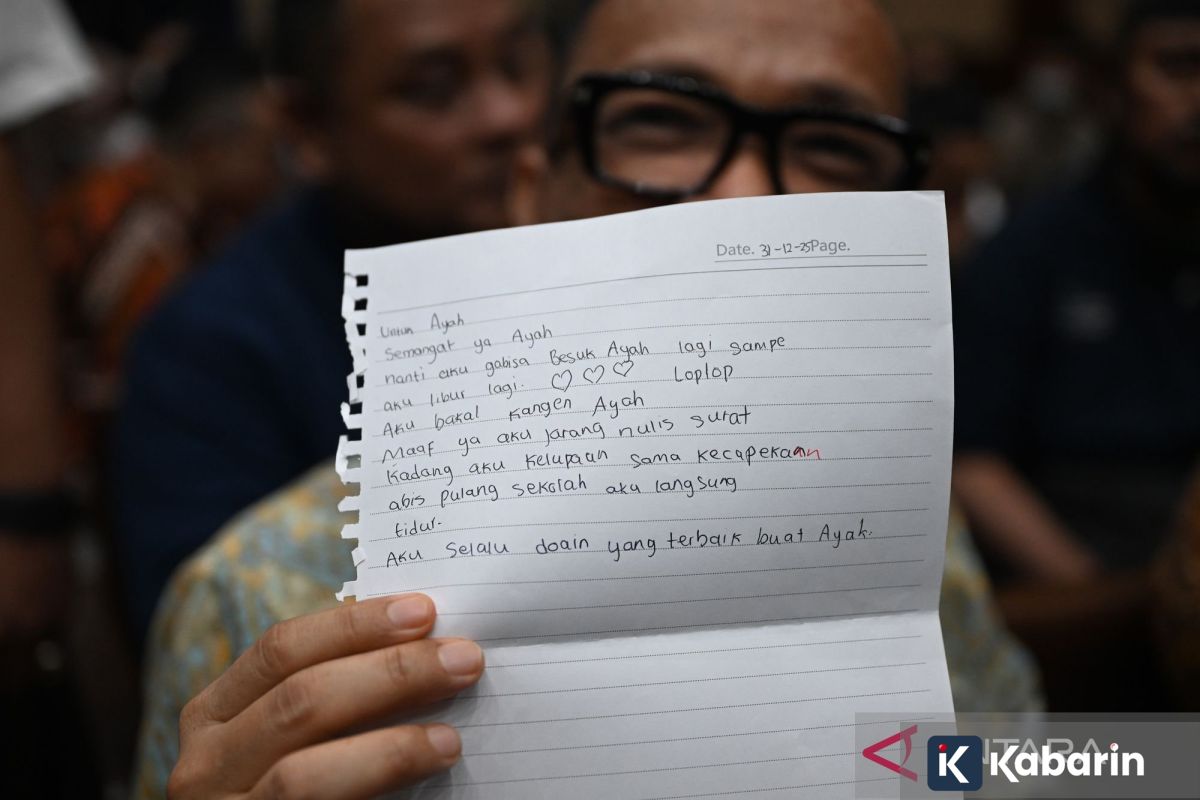 Date. 31-12-25 Page.
Untuk Ayah
Semangat ya Ayah
nanti aku gabisa Besuk Ayah lagi sampe
aku libur lagi. ♡ ♡ ♡ Loplop
Aku bakal kangen Ayah
Maaf ya aku jarang nulis surat
Kadang aku kelupaan sama kecapekaan
abis pulang sekolah aku langsung
tidur.
Aku selalu doain yang terbaik buat Ayah.
ANTARA
K Kabarin